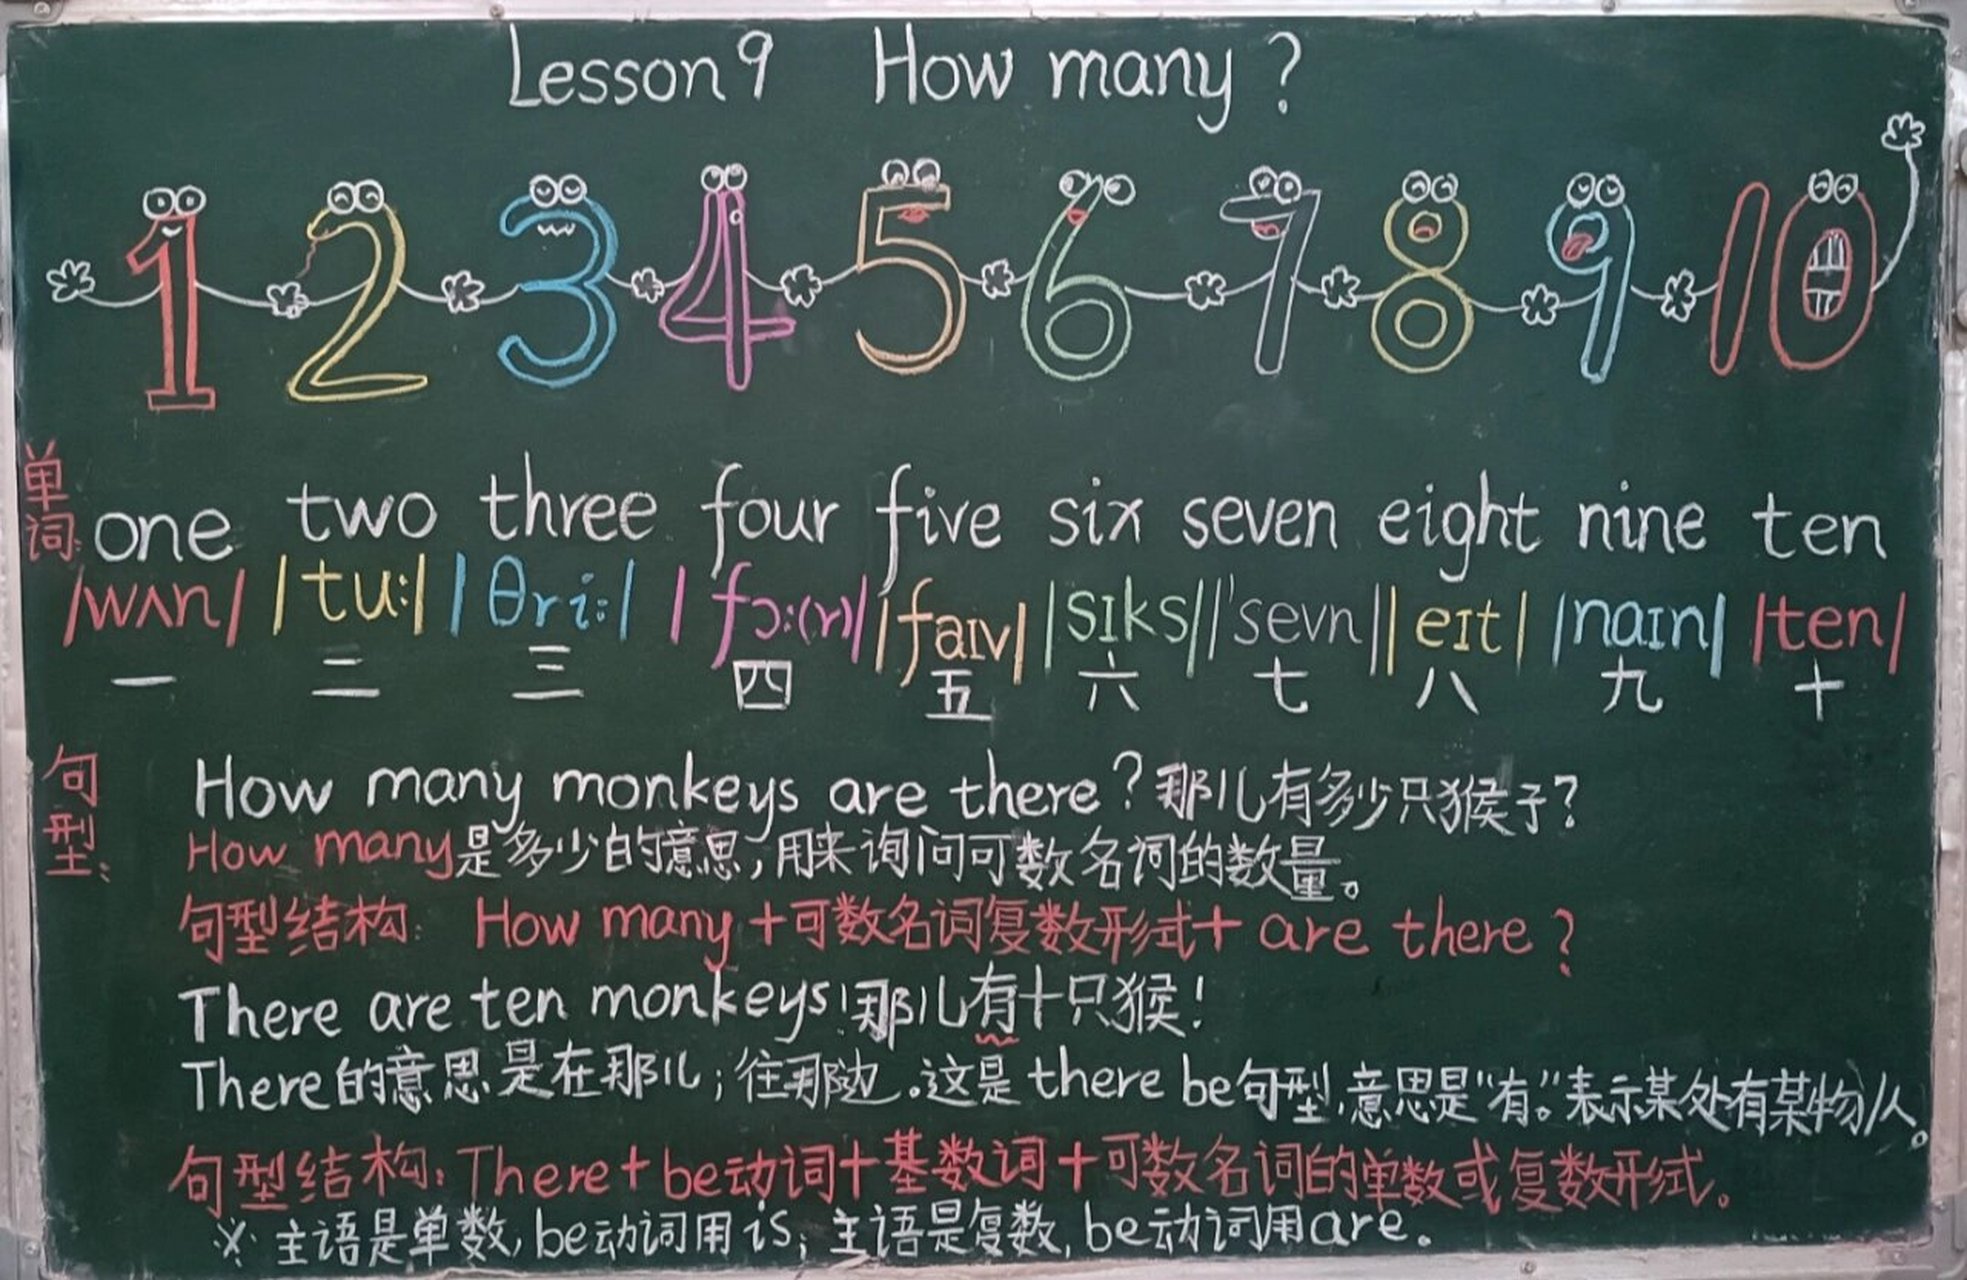 Lesson 9 How many?
1 2 3 4 5 6 7 8 9 10
单词
one two three four five six seven eight nine ten
/wʌn/ /tu:/ /θri:/ /fɔ:(r)/ /faɪv/ /sɪks/ /'sevn/ /eɪt/ /naɪn/ /ten/
一 二 三 四 五 六 七 八 九 十
句型:
How many monkeys are there? 那儿有多少只猴子?
How many是多少的意思,用来询问可数名词的数量。
句型结构: How many+可数名词复数形式+ are there?
There are ten monkeys!那儿有十只猴!
There的意思是在那儿;往那边。这是there be句型,意思是“有。”表示某处有某物/人。
句型结构:There+be动词+基数词+可数名词的单数或复数形式。
※主语是单数,be动词用is;主语是复数,be动词用are。